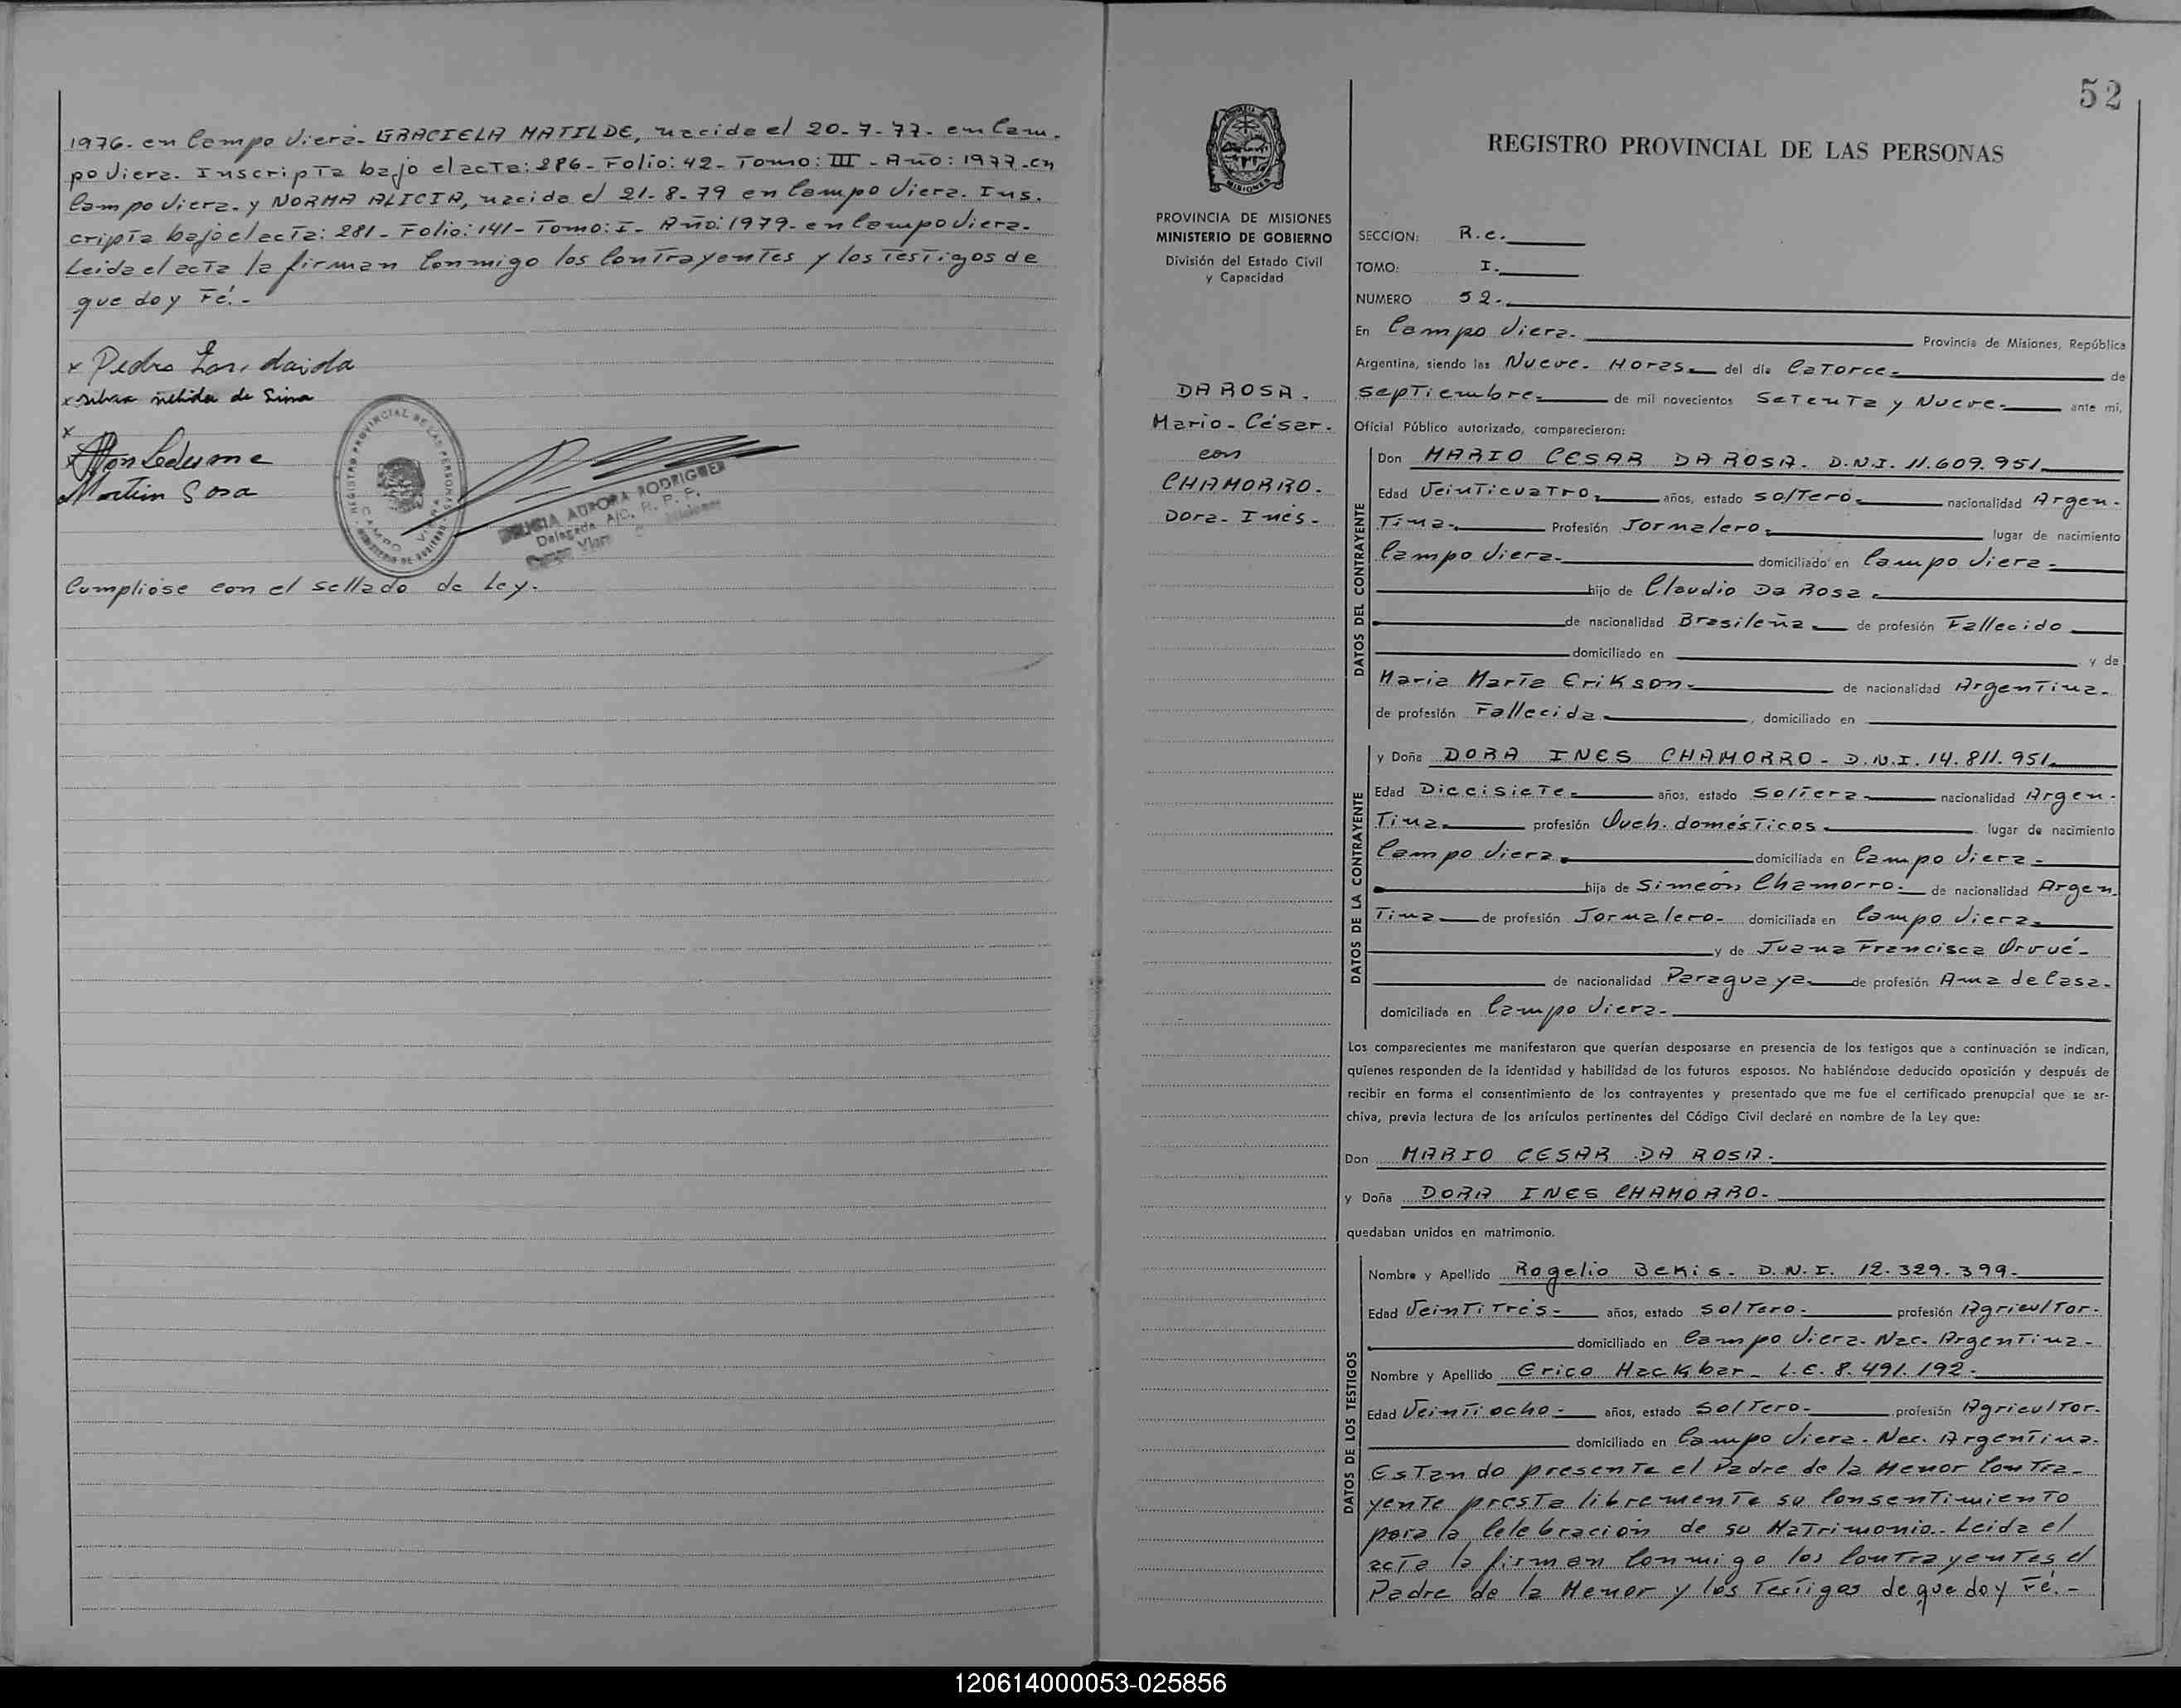 1976- en Campo Viera- GRACIELA MATILDE, nacida el 20-7-77- en Cam-
po Viera. Inscripta bajo el acta: 286- Folio: 42- Tomo: III- Año: 1977-en
Campo Viera- y NORMA ALICIA, nacida el 21-8-79 en Campo Viera. Ins-
cripta bajo el acta: 281- Folio: 141- Tomo: I- Año: 1979- en Campo Viera-
Leida el acta la firman Conmigo los Contrayentes y los Testigos de
que doy Fé.-
x Pedro
x
x
Ledesma
Martin Sosa
REGISTRO PROVINCIAL DE LAS PERSONAS
CAMPO VIERA
AURORA RODRIGUEZ
Delegada A/C. R. P. P.
Campo Viera Misiones
Cumplióse con el sellado de Ley.
52
MISIONES
PROVINCIA DE MISIONES
MINISTERIO DE GOBIERNO
División del Estado Civil
y Capacidad
DA ROSA.
Mario- César-
con
CHAMORRO.
Dora- Inés-
REGISTRO PROVINCIAL DE LAS PERSONAS
SECCION: R.e.
TOMO: I.
NUMERO 52.
En Campo Viera- Provincia de Misiones, República
Argentina, siendo las Nueve- Horas- del día Catorce- de
Septiembre- de mil novecientos Setenta y Nueve- ante mi,
Oficial Público autorizado, comparecieron:
DATOS DEL CONTRAYENTE
Don MARIO CESAR DA ROSA- D.N.I. 11.609.951
Edad Veinticuatro- años, estado Soltero- nacionalidad Argen-
Tina- Profesión Jornalero- lugar de nacimiento
Campo Viera- domiciliado en Campo Viera-
hijo de Claudio Da Rosa-
de nacionalidad Brasileña- de profesión Fallecido
domiciliado en y de
Maria Marta Erikson- de nacionalidad Argentina-
de profesión Fallecida-, domiciliado en
DATOS DE LA CONTRAYENTE
y Doña DORA INES CHAMORRO- D.N.I. 14.811.951
Edad Diecisiete- años, estado Soltera- nacionalidad Argen-
Tina- profesión Queh. domésticos- lugar de nacimiento
Campo Viera- domiciliada en Campo Viera-
hija de Simeón Chamorro- de nacionalidad Argen-
Tina- de profesión Jornalero- domiciliada en Campo Viera-
y de Juana Francisca Orrué-
de nacionalidad Paraguaya- de profesión Ama de Casa-
domiciliada en Campo Viera-
Los comparecientes me manifestaron que querían desposarse en presencia de los testigos que a continuación se indican,
quienes responden de la identidad y habilidad de los futuros esposos. No habiéndose deducido oposición y después de
recibir en forma el consentimiento de los contrayentes y presentado que me fue el certificado prenupcial que se ar-
chiva, previa lectura de los artículos pertinentes del Código Civil declaré en nombre de la Ley que:
Don MARIO CESAR DA ROSA-
y Doña DORA INES CHAMORRO-
quedaban unidos en matrimonio.
DATOS DE LOS TESTIGOS
Nombre y Apellido Rogelio Bekis- D.N.I. 12.329.399-
Edad Veintitrés- años, estado Soltero- profesión Agricultor-
domiciliado en Campo Viera- Nac. Argentina-
Nombre y Apellido Erico Hackbar- L.E. 8.491.192-
Edad Veintiocho- años, estado Soltero- profesión Agricultor-
domiciliado en Campo Viera- Nac. Argentina-
Estando presente el Padre de la Menor Contra-
yente presta libremente su Consentimiento
para la Celebración de su Matrimonio- Leida el
acta la firman Conmigo los Contrayentes el
Padre de la Menor y los Testigos de que doy Fé.-
120614000053-025856